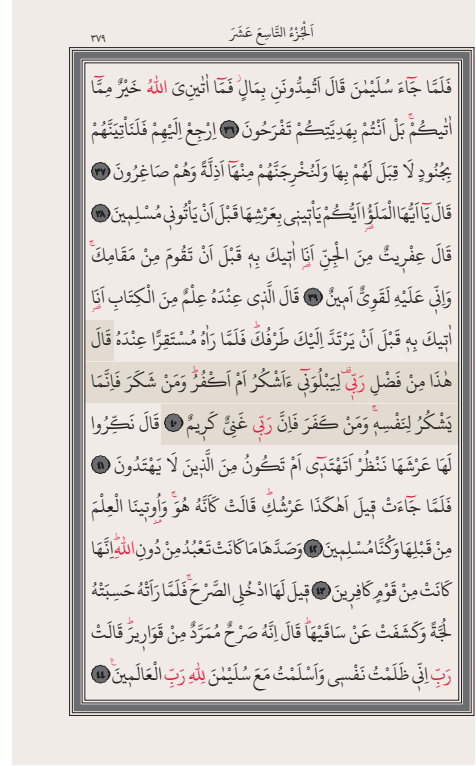 اَلْجُزْءُ التَّاسِعَ عَشَرَ
٣٧٩
فَلَمَّا جَٓاءَ سُلَيْمٰنَ قَالَ اَتُمِدُّونَنِ بِمَالٍۘ فَمَٓا اٰتٰينِىَ اللّٰهُ خَيْرٌ مِمَّٓا
اٰتٰيكُمْۚ بَلْ اَنْتُمْ بِهَدِيَّتِكُمْ تَفْرَحُونَ ﴿٣٦﴾ اِرْجِعْ اِلَيْهِمْ فَلَنَأْتِيَنَّهُمْ
بِجُنُودٍ لَا قِبَلَ لَهُمْ بِهَا وَلَنُخْرِجَنَّهُمْ مِنْهَٓا اَذِلَّةً وَهُمْ صَاغِرُونَ ﴿٣٧﴾
قَالَ يَٓا اَيُّهَا الْمَلَؤُ۬ا اَيُّكُمْ يَأْتٖينٖى بِعَرْشِهَا قَبْلَ اَنْ يَأْتُونٖى مُسْلِمٖينَ ﴿٣٨﴾
قَالَ عِفْرٖيتٌ مِنَ الْجِنِّ اَنَا۬ اٰتٖيكَ بِهٖ قَبْلَ اَنْ تَقُومَ مِنْ مَقَامِكَۚ
وَاِنّٖى عَلَيْهِ لَقَوِىٌّ اَمٖينٌ ﴿٣٩﴾ قَالَ الَّذٖى عِنْدَهُ عِلْمٌ مِنَ الْكِتَابِ اَنَا۬
اٰتٖيكَ بِهٖ قَبْلَ اَنْ يَرْتَدَّ اِلَيْكَ طَرْفُكَۜ فَلَمَّا رَاٰهُ مُسْتَقِرًّا عِنْدَهُ قَالَ
هٰذَا مِنْ فَضْلِ رَبّٖىࣞ لِيَبْلُوَنٖٓى ءَاَشْكُرُ اَمْ اَكْفُرُۜ وَمَنْ شَكَرَ فَاِنَّمَا
يَشْكُرُ لِنَفْسِهٖۚ وَمَنْ كَفَرَ فَاِنَّ رَبّٖى غَنِىٌّ كَرٖيمٌ ﴿٤٠﴾ قَالَ نَكِّرُوا
لَهَا عَرْشَهَا نَنْظُرْ اَتَهْتَدٖٓى اَمْ تَكُونُ مِنَ الَّذٖينَ لَا يَهْتَدُونَ ﴿٤١﴾
فَلَمَّا جَٓاءَتْ قٖيلَ اَهٰكَذَا عَرْشُكِۜ قَالَتْ كَاَنَّهُ هُوَۚ وَاُو۫تٖينَا الْعِلْمَ
مِنْ قَبْلِهَا وَكُنَّا مُسْلِمٖينَ ﴿٤٢﴾ وَصَدَّهَا مَا كَانَتْ تَعْبُدُ مِنْ دُونِ اللّٰهِۜ اِنَّهَا
كَانَتْ مِنْ قَوْمٍ كَافِرٖينَ ﴿٤٣﴾ قٖيلَ لَهَا ادْخُلِى الصَّرْحَۚ فَلَمَّا رَاَتْهُ حَسِبَتْهُ
لُجَّةً وَكَشَفَتْ عَنْ سَاقَيْهَاۜ قَالَ اِنَّهُ صَرْحٌ مُمَرَّدٌ مِنْ قَوَارٖيرَۜ قَالَتْ
رَبِّ اِنّٖى ظَلَمْتُ نَفْسٖى وَاَسْلَمْتُ مَعَ سُلَيْمٰنَ لِلّٰهِ رَبِّ الْعَالَمٖينَ۟ ﴿٤٤﴾